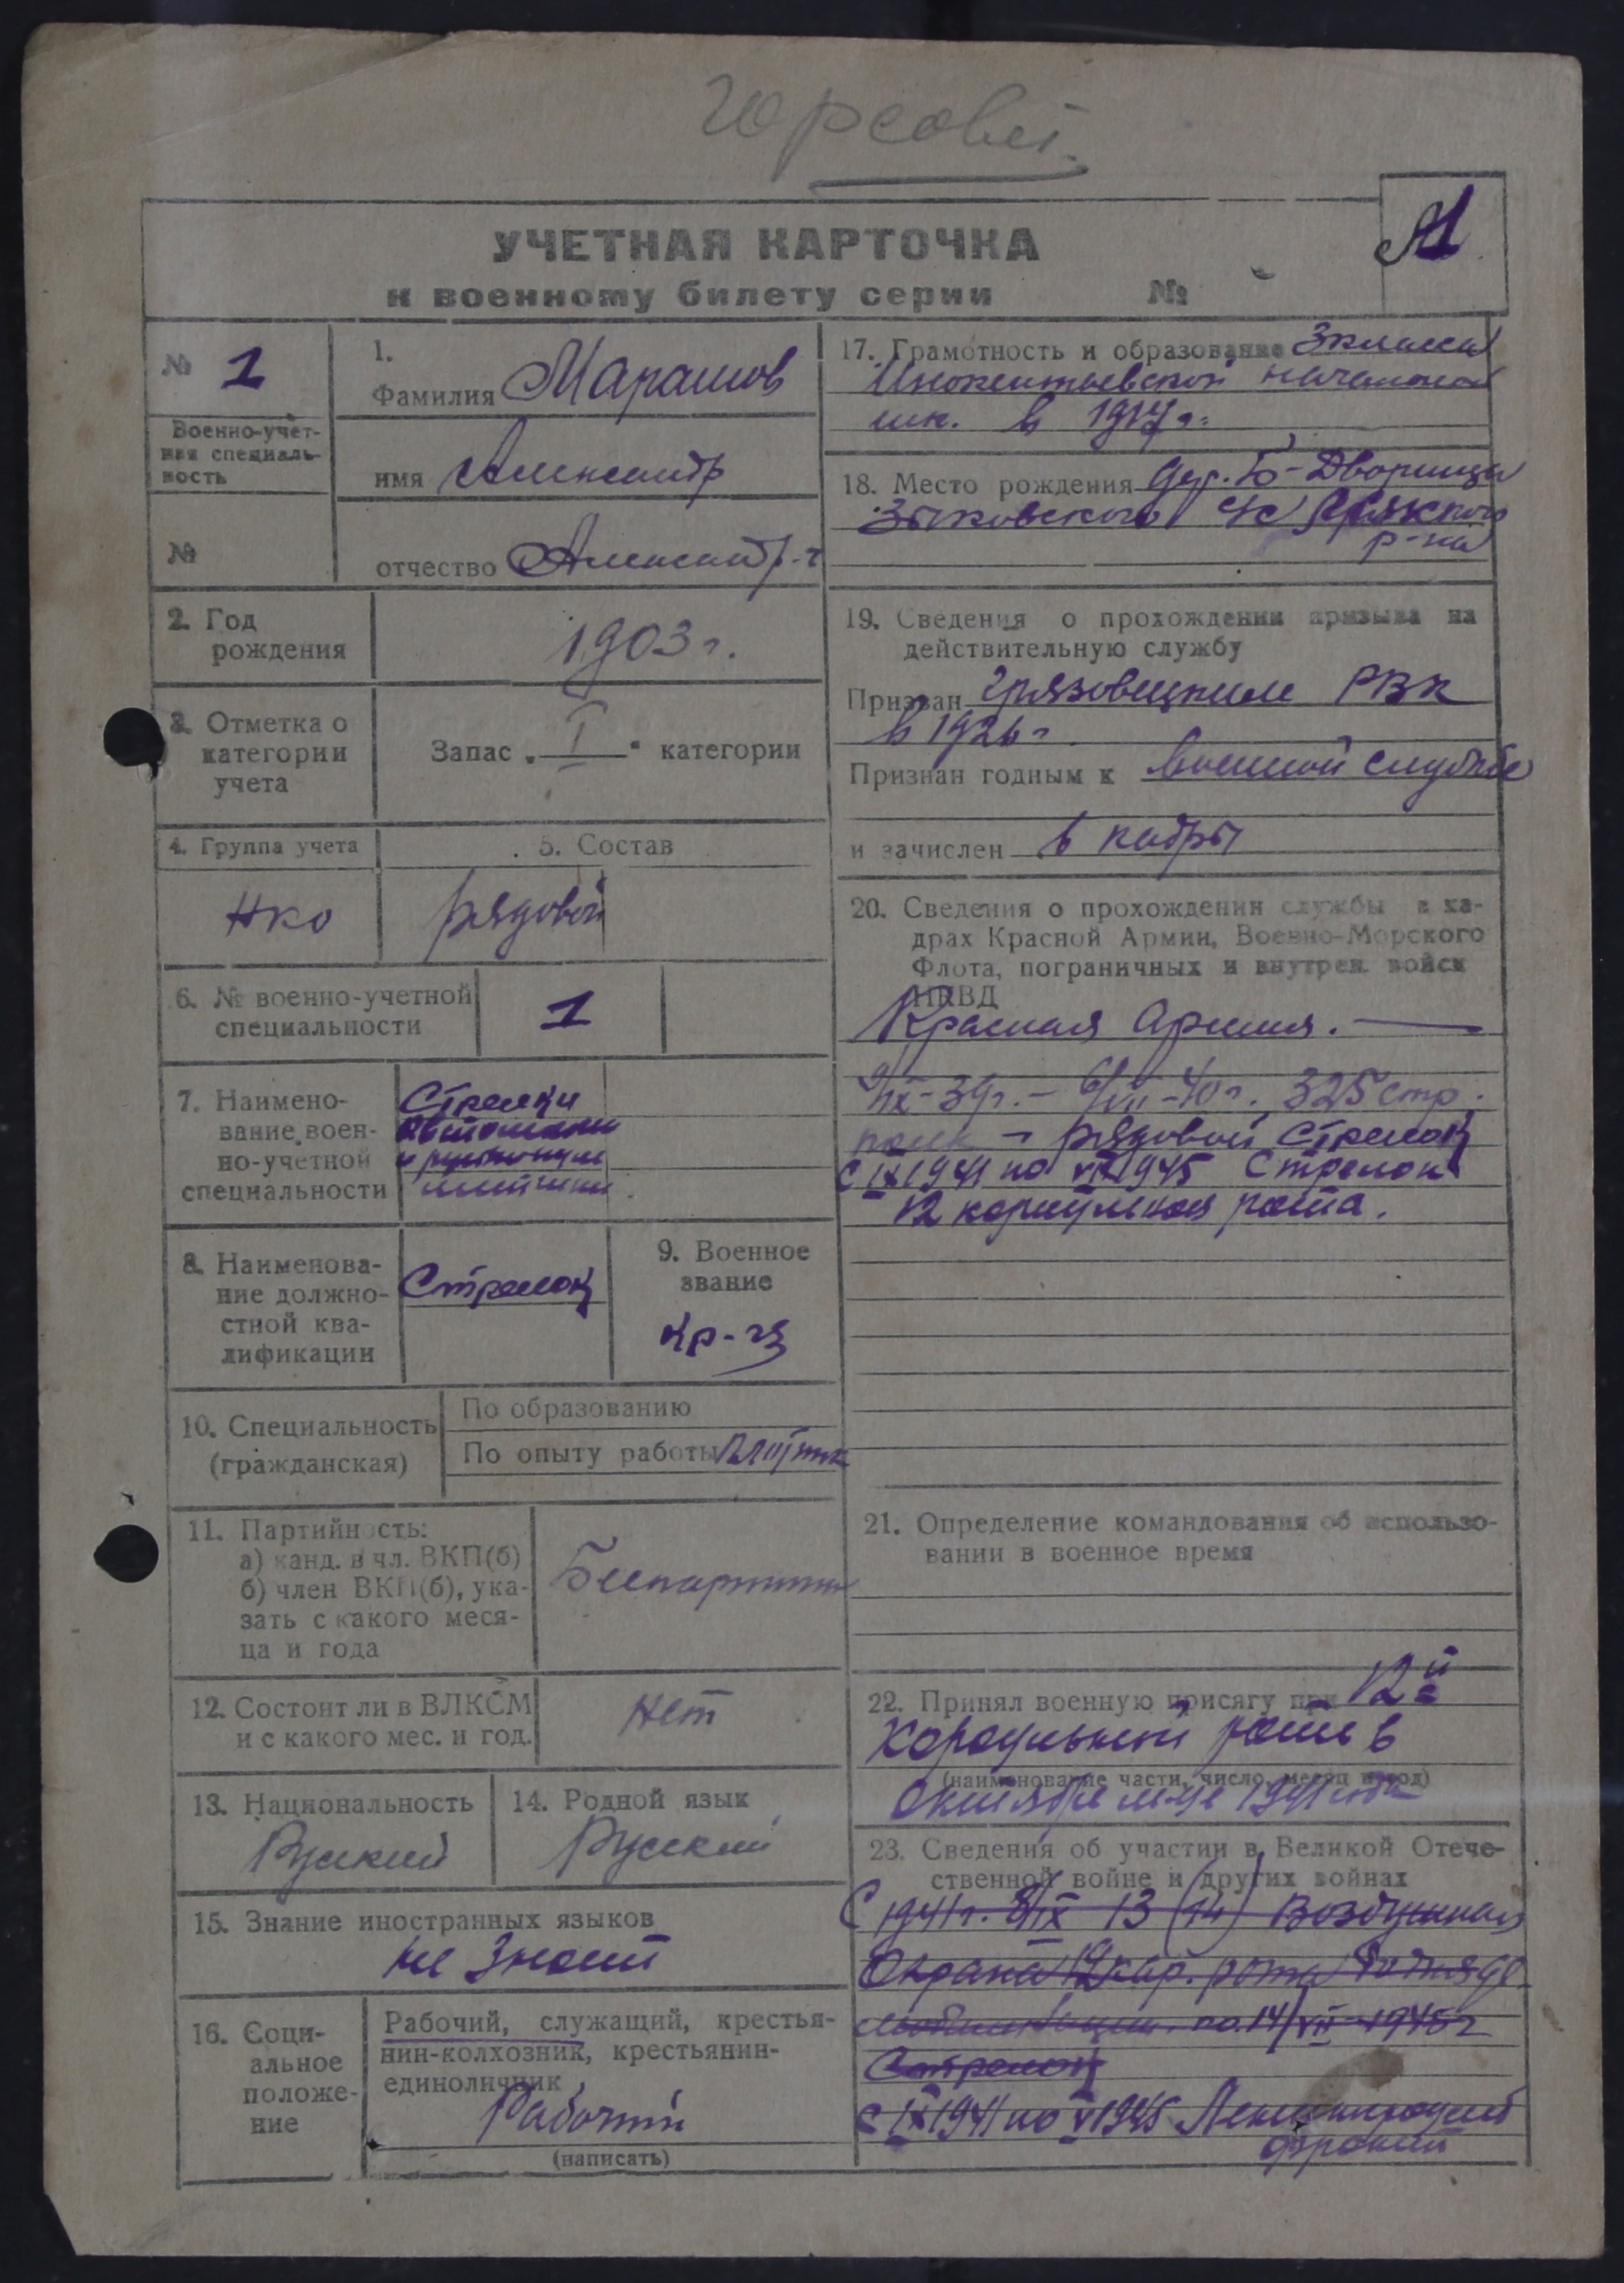 Горсовет.
А1
УЧЕТНАЯ КАРТОЧКА
к военному билету серии №
№ 1
Военно-учет-
ная специаль-
ность
№
1.
Фамилия Марашов
имя Александр
отчество Александр-ч
2. Год
рождения
1903 г.
3. Отметка о
категории
учета
Запас „ I " категории
4. Группа учета
5. Состав
НКО
рядовой
6. № военно-учетной
специальности
1
7. Наимено-
вание воен-
но-учетной
специальности
Стрелки
8. Наименова-
ние должно-
стной ква-
лификации
Стрелок
9. Военное
звание
кр-ец
10. Специальность
(гражданская)
По образованию
По опыту работы Плотник
11. Партийность:
а) канд. в чл. ВКП(б)
б) член ВКП(б), ука-
зать с какого меся-
ца и года
Беспартийн
12. Состоит ли в ВЛКСМ
и с какого мес. и год.
Нет
13. Национальность
Руский
14. Родной язык
Русский
15. Знание иностранных языков
не знает
16. Соци-
альное
положе-
ние
Рабочий, служащий, крестья-
нин-колхозник, крестьянин-
единоличник
Рабочий
(написать)
17. Грамотность и образование 3 класса
начальной
шк. в 1917 г.
18. Место рождения дер. Б-Дворищи
Зыковского с/с
р-на
19. Сведения о прохождении призыва на
действительную службу
Призван Грязовецким РВК
в 1926 г
Признан годным к военной службе
и зачислен в кадры
20. Сведения о прохождении службы в ка-
драх Красной Армии, Военно-Морского
Флота, пограничных и внутрен. войск
НКВД
Красная Армия.
9/IX-39г. - 6/VII-40г. 325 стр.
полк - рядовой стрелок
с IX 1941 по VII 1945 Стрелок
12 караульная рота.
21. Определение командования об использо-
вании в военное время
22. Принял военную присягу при 12й
Караульной роте в
(наименование части, число, месяц и год)
Октябре м-це 1941 года
23. Сведения об участии в Великой Отече-
ственной войне и других войнах
С 1941 г. 8/IX 13 (14) Воздушная
Охрана 12 кар. рота
по 14/VII-1945 г
Стрелок
с IX 1941 по V 1945 Ленинградский
фронт